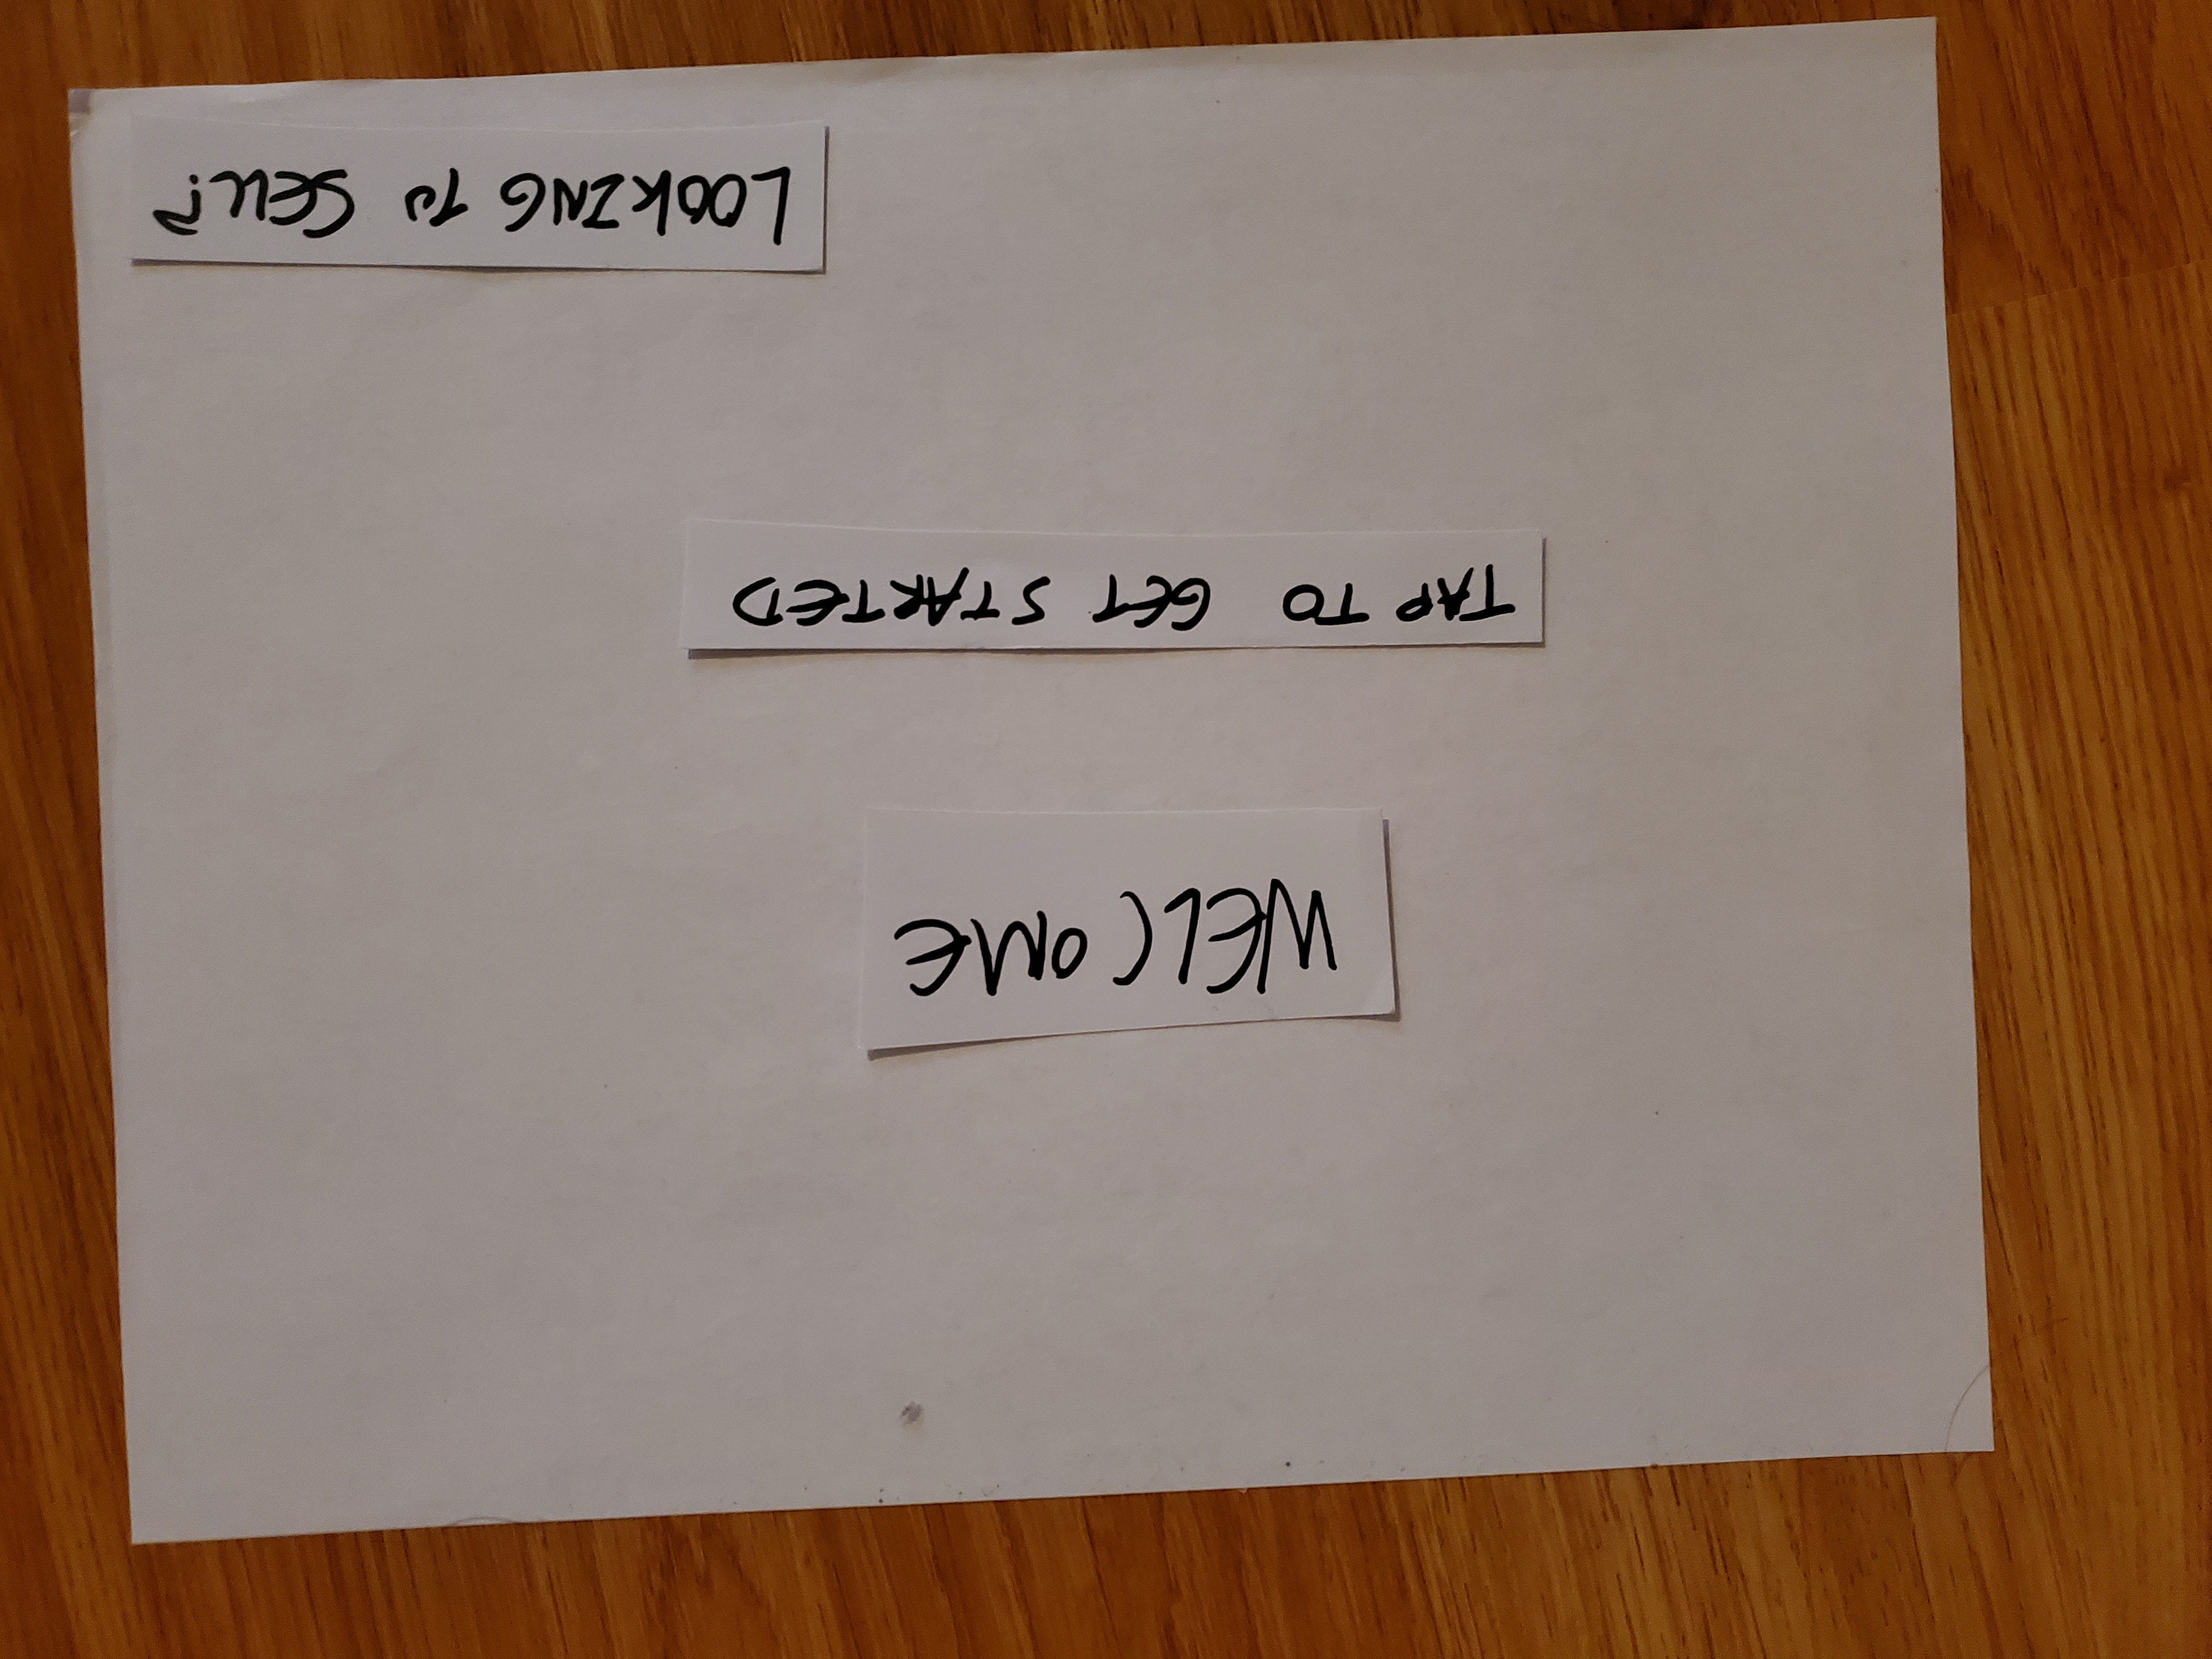 WELCOME
TAP TO GET STARTED
LOOKING TO SELL?